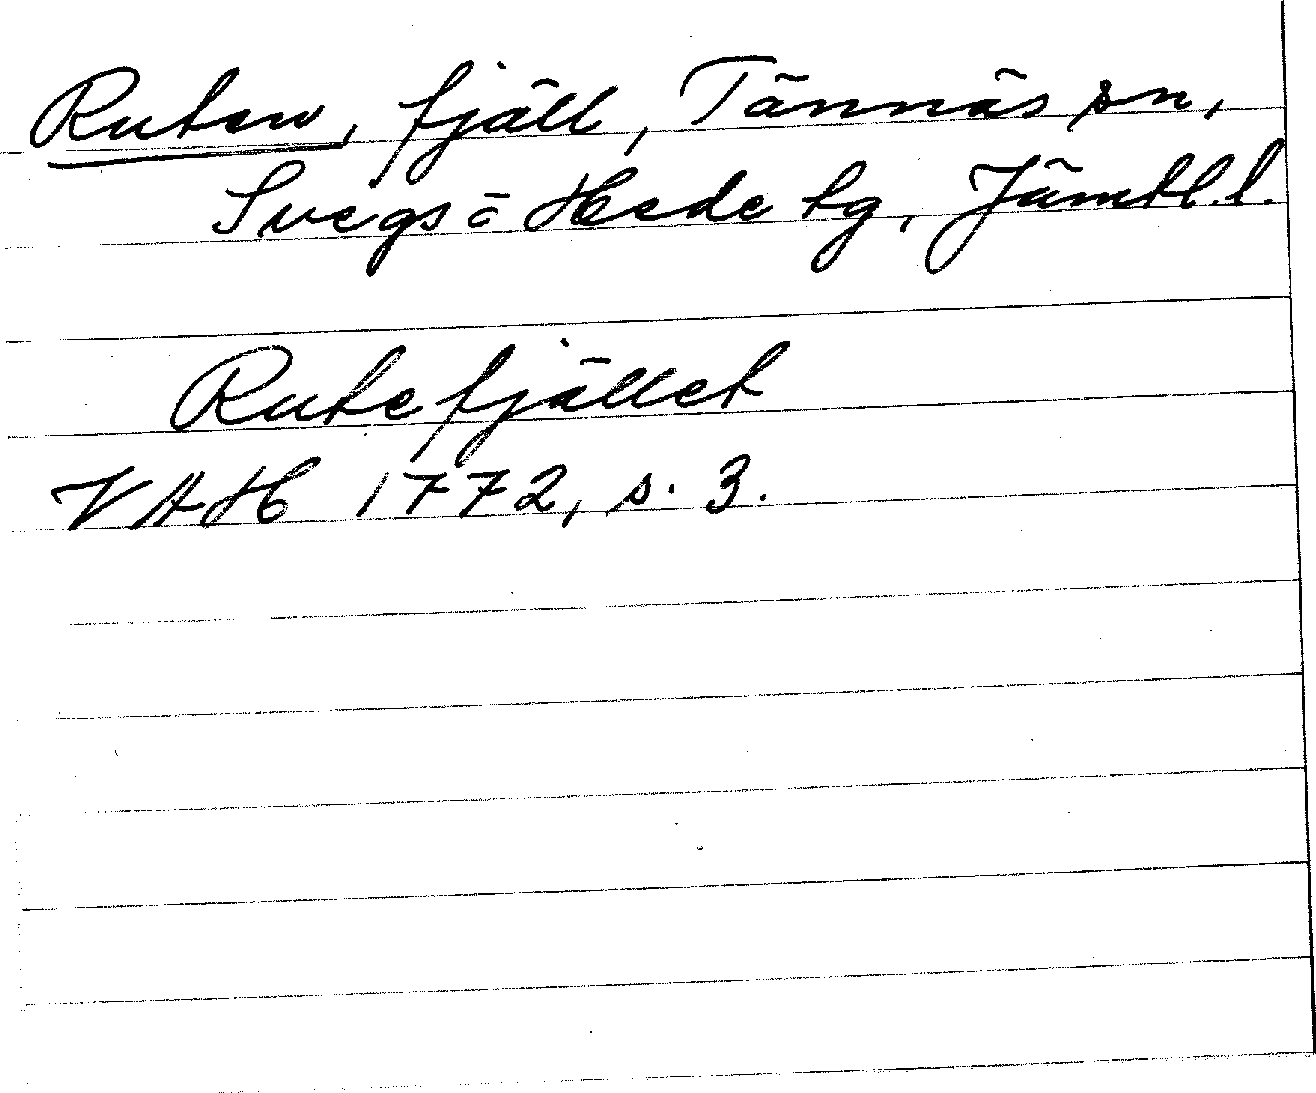 Ruten, fjäll, Tännäs sn,
Svegs o Hede tg, Jämtl. l.
Rutefjället
VAH 1772, s. 3.